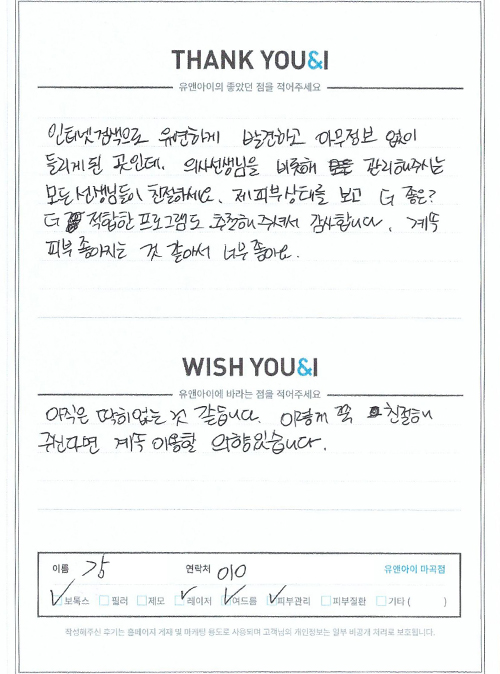 THANK YOU&I
유앤아이의 좋았던 점을 적어주세요
인터넷 검색으로 우연하게 발견하고 아무정보 없이
들리게 된 곳인데. 의사선생님을 비롯해 관리해주시는
모든 선생님들이 친절하세요. 제 피부상태를 보고 더 좋은?
더 적합한 프로그램도 추천해 주셔서 감사합니다. 계속
피부 좋아지는 것 같아서 너무 좋아요.
WISH YOU&I
유앤아이에 바라는 점을 적어주세요
아직은 딱히 없는 것 같습니다. 이렇게 쭉 친절해
주신다면 계속 이용할 의향있습니다.
이름 강 연락처 010 유앤아이 마곡점
보톡스 필러 제모 레이저 여드름 피부관리 피부질환 기타 ( )
작성해주신 후기는 홈페이지 게재 및 마케팅 용도로 사용되며 고객님의 개인정보는 일부 비공개 처리로 보호됩니다.